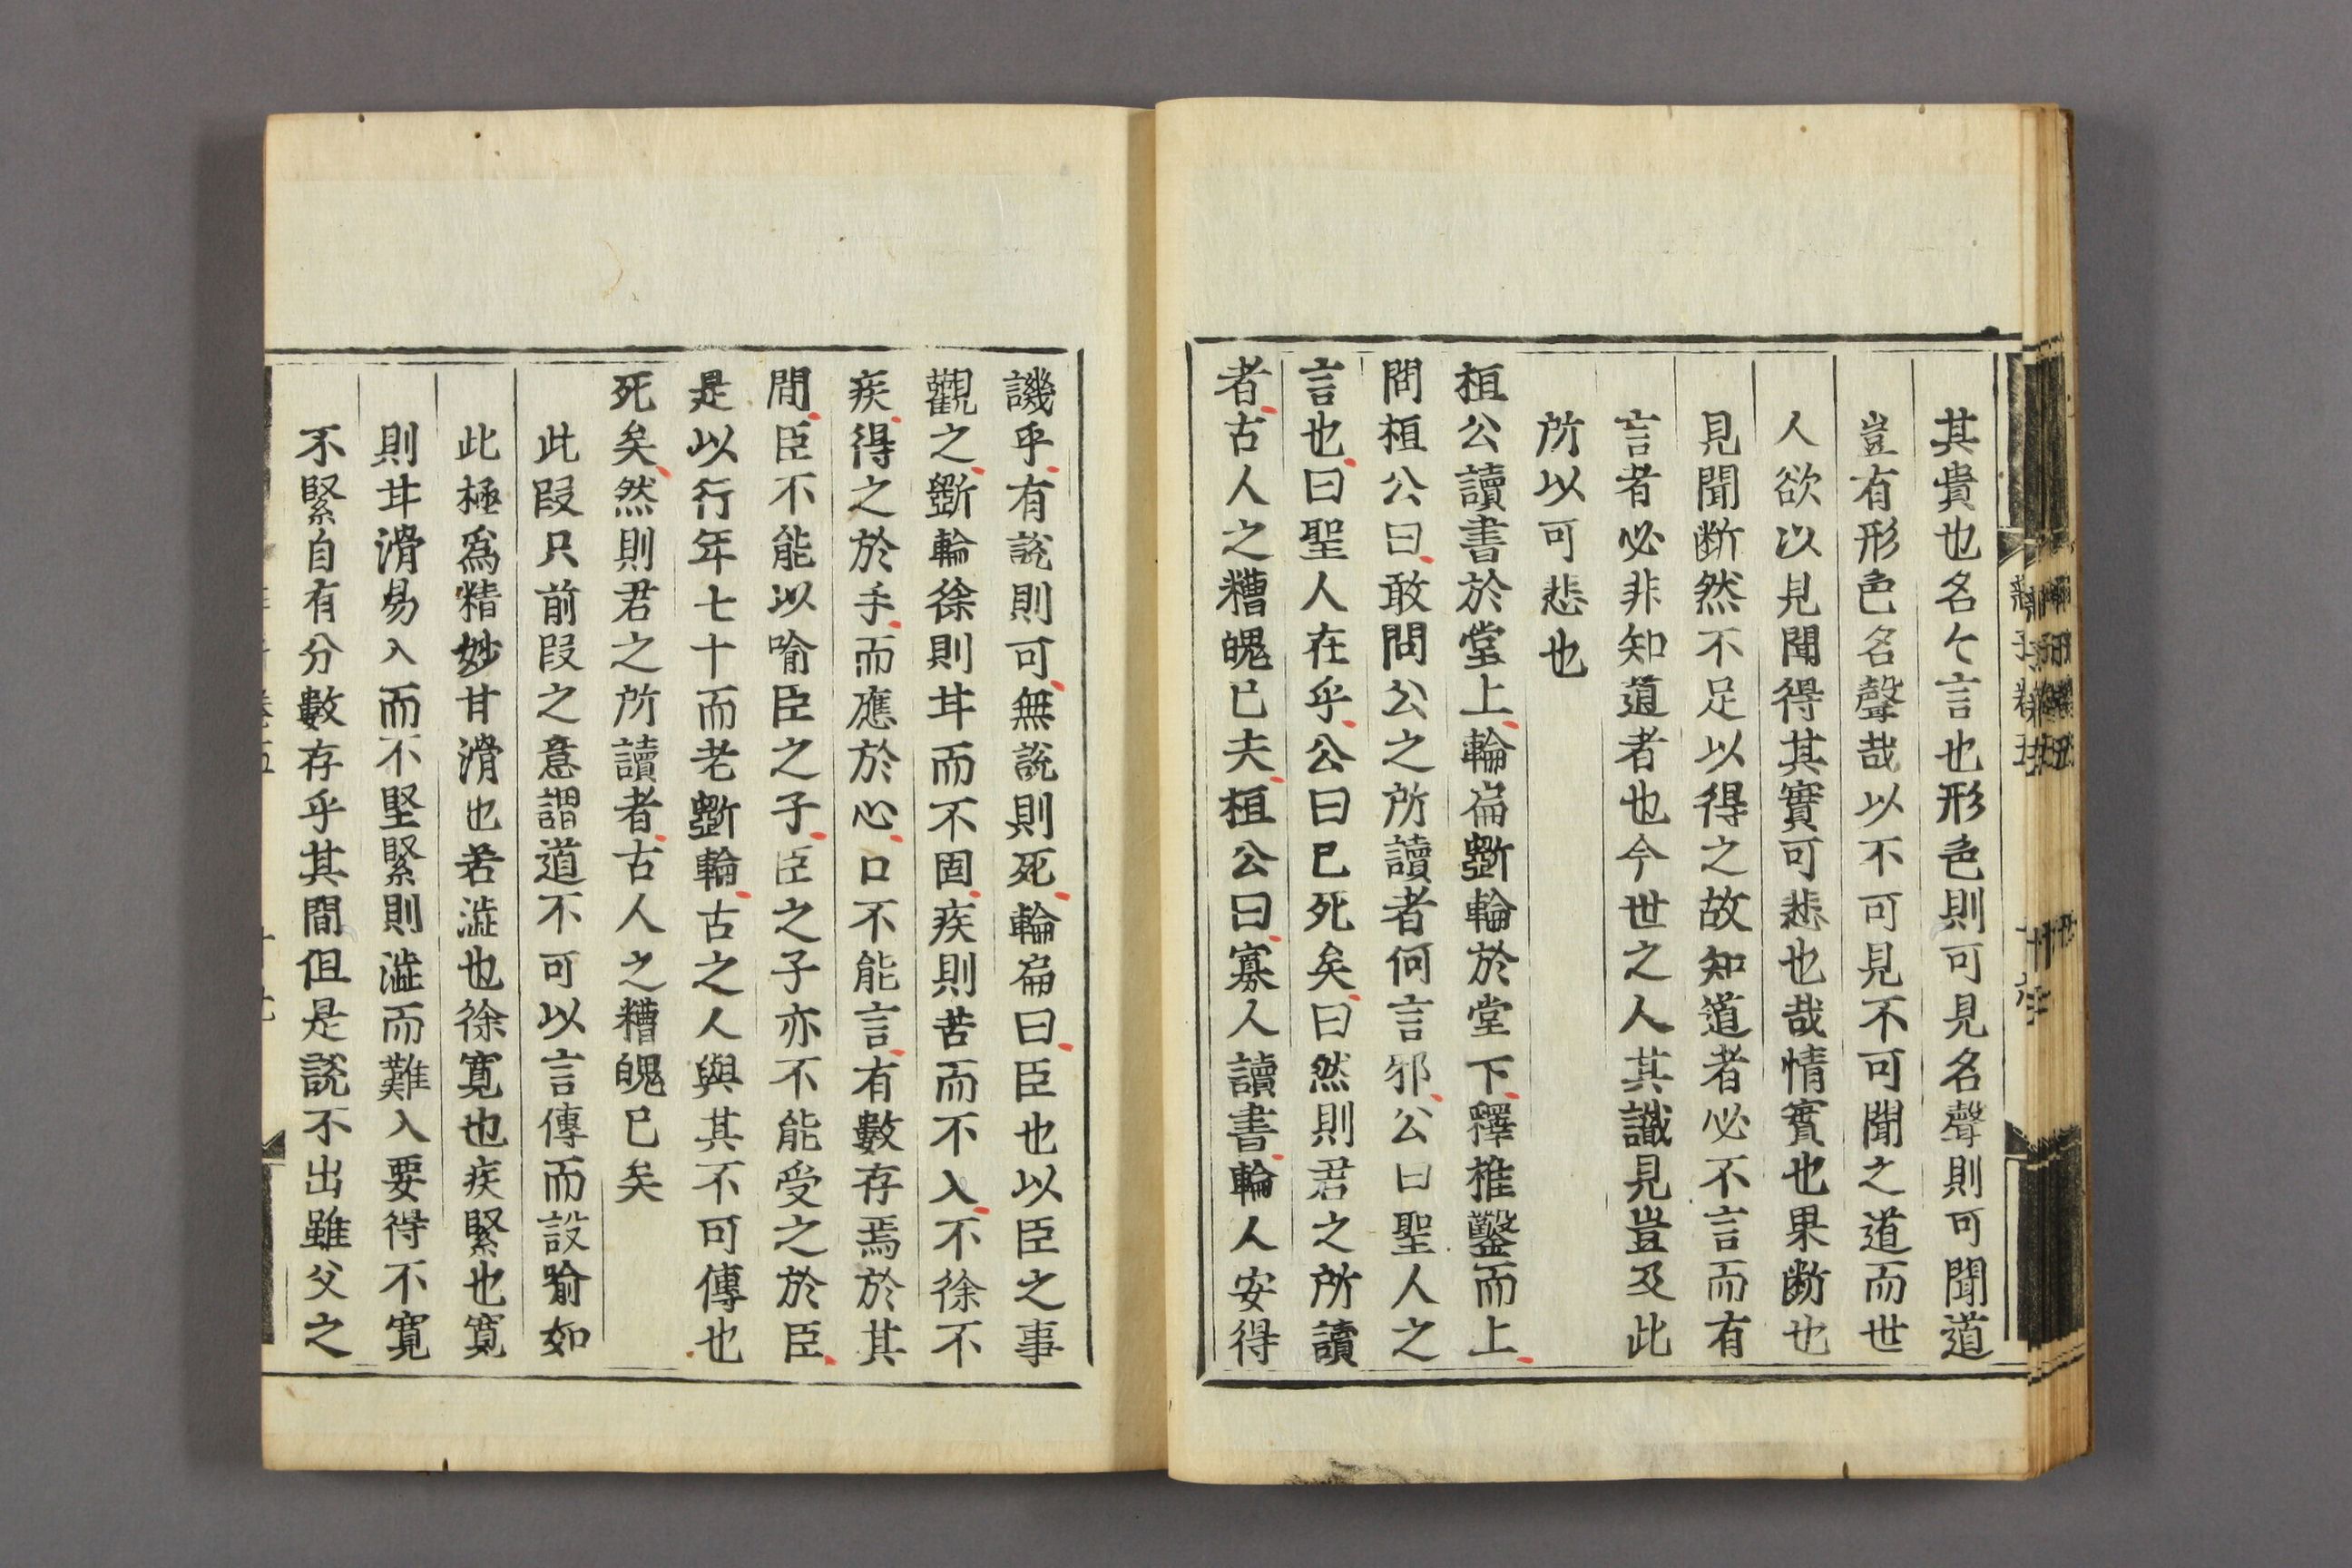 其貴也名々言也形色則可見名聲則可聞道
豈有形色名聲哉以不可見不可聞之道而世
人欲以見聞得其實可悲也哉情實也果断也
見聞断然不足以得之故知道者必不言而有
言者必非知道者也今世之人其識見豈及此
所以可悲也
桓公讀書於堂上輪扁斲輪於堂下釋椎鑿而上
問桓公曰敢問公之所讀者何言邪公曰聖人之
言也曰聖人在乎公曰已死矣曰然則君之所讀
者古人之糟魄已夫桓公曰寡人讀書輪人安得
譏乎有說則可無說則死輪扁曰臣也以臣之事
觀之斲輪徐則甘而不固疾則苦而不入不徐不
疾得之於手而應於心口不能言有數存焉於其
間臣不能以喻臣之子臣之子亦不能受之於臣
是以行年七十而老斲輪古之人與其不可傳也
死矣然則君之所讀者古人之糟魄已矣
此段只前段之意謂道不可以言傳而設喻如
此極爲精妙甘滑也若澁也徐寛也疾緊也寛
則甘滑易入而不堅緊則澁而難入要得不寛
不緊自有分數存乎其間但是說不出雖父之